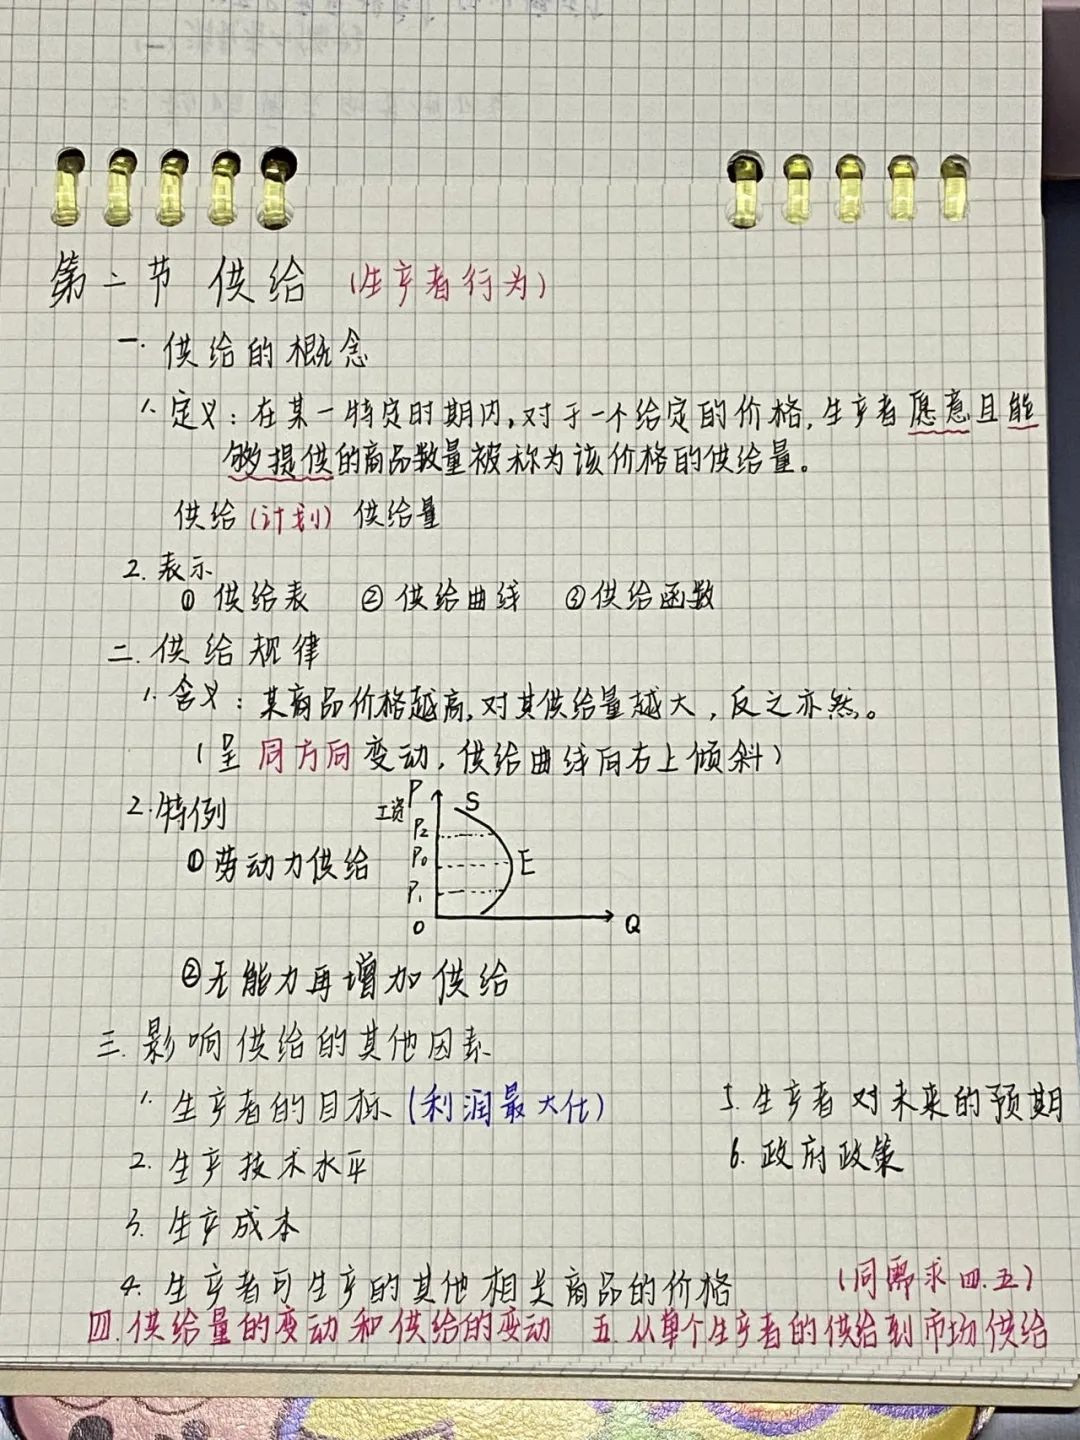 第二节 供给 (生产者行为)
一. 供给的概念
1. 定义：在某一特定时期内,对于一个给定的价格,生产者愿意且能
够提供的商品数量被称为该价格的供给量。
供给(计划) 供给量
2. 表示
① 供给表 ② 供给曲线 ③供给函数
二.供给规律
1. 含义：某商品价格越高,对其供给量越大，反之亦然。
(呈同方向变动，供给曲线向右上倾斜)
2.特例
P
S
工资
P2
①劳动力供给
P0
E
P1
O
Q
②无能力再增加供给
三.影响供给的其他因素
1. 生产者的目标(利润最大化)
5. 生产者对未来的预期
2. 生产技术水平
6. 政府政策
3. 生产成本
4. 生产者可生产的其他相关商品的价格
(同需求四.五)
四.供给量的变动和供给的变动 五.从单个生产者的供给到市场供给